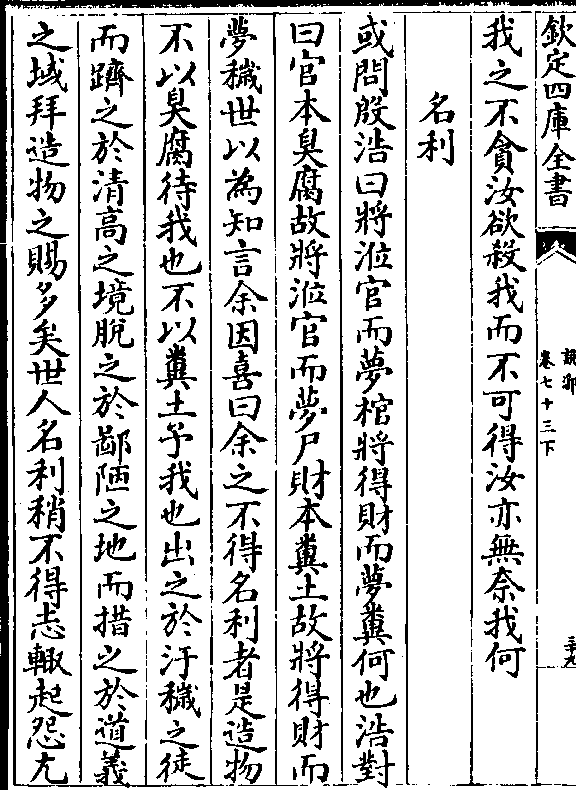 欽定四庫全書
說郛
卷七十三下
三十九
我之不貪汝欲殺我而不可得汝亦無奈我何
名利
或問殷浩曰將涖官而夢棺將得財而夢糞何也浩對
曰官本臭腐故將涖官而夢尸財本糞土故將得財而
夢穢世以為知言余因喜曰余之不得名利者是造物
不以臭腐待我也不以糞土予我也出之於汙穢之徒
而躋之於清高之境脫之於鄙陋之地而措之於道義
之域拜造物之賜多矣世人名利稍不得志輙起怨尤